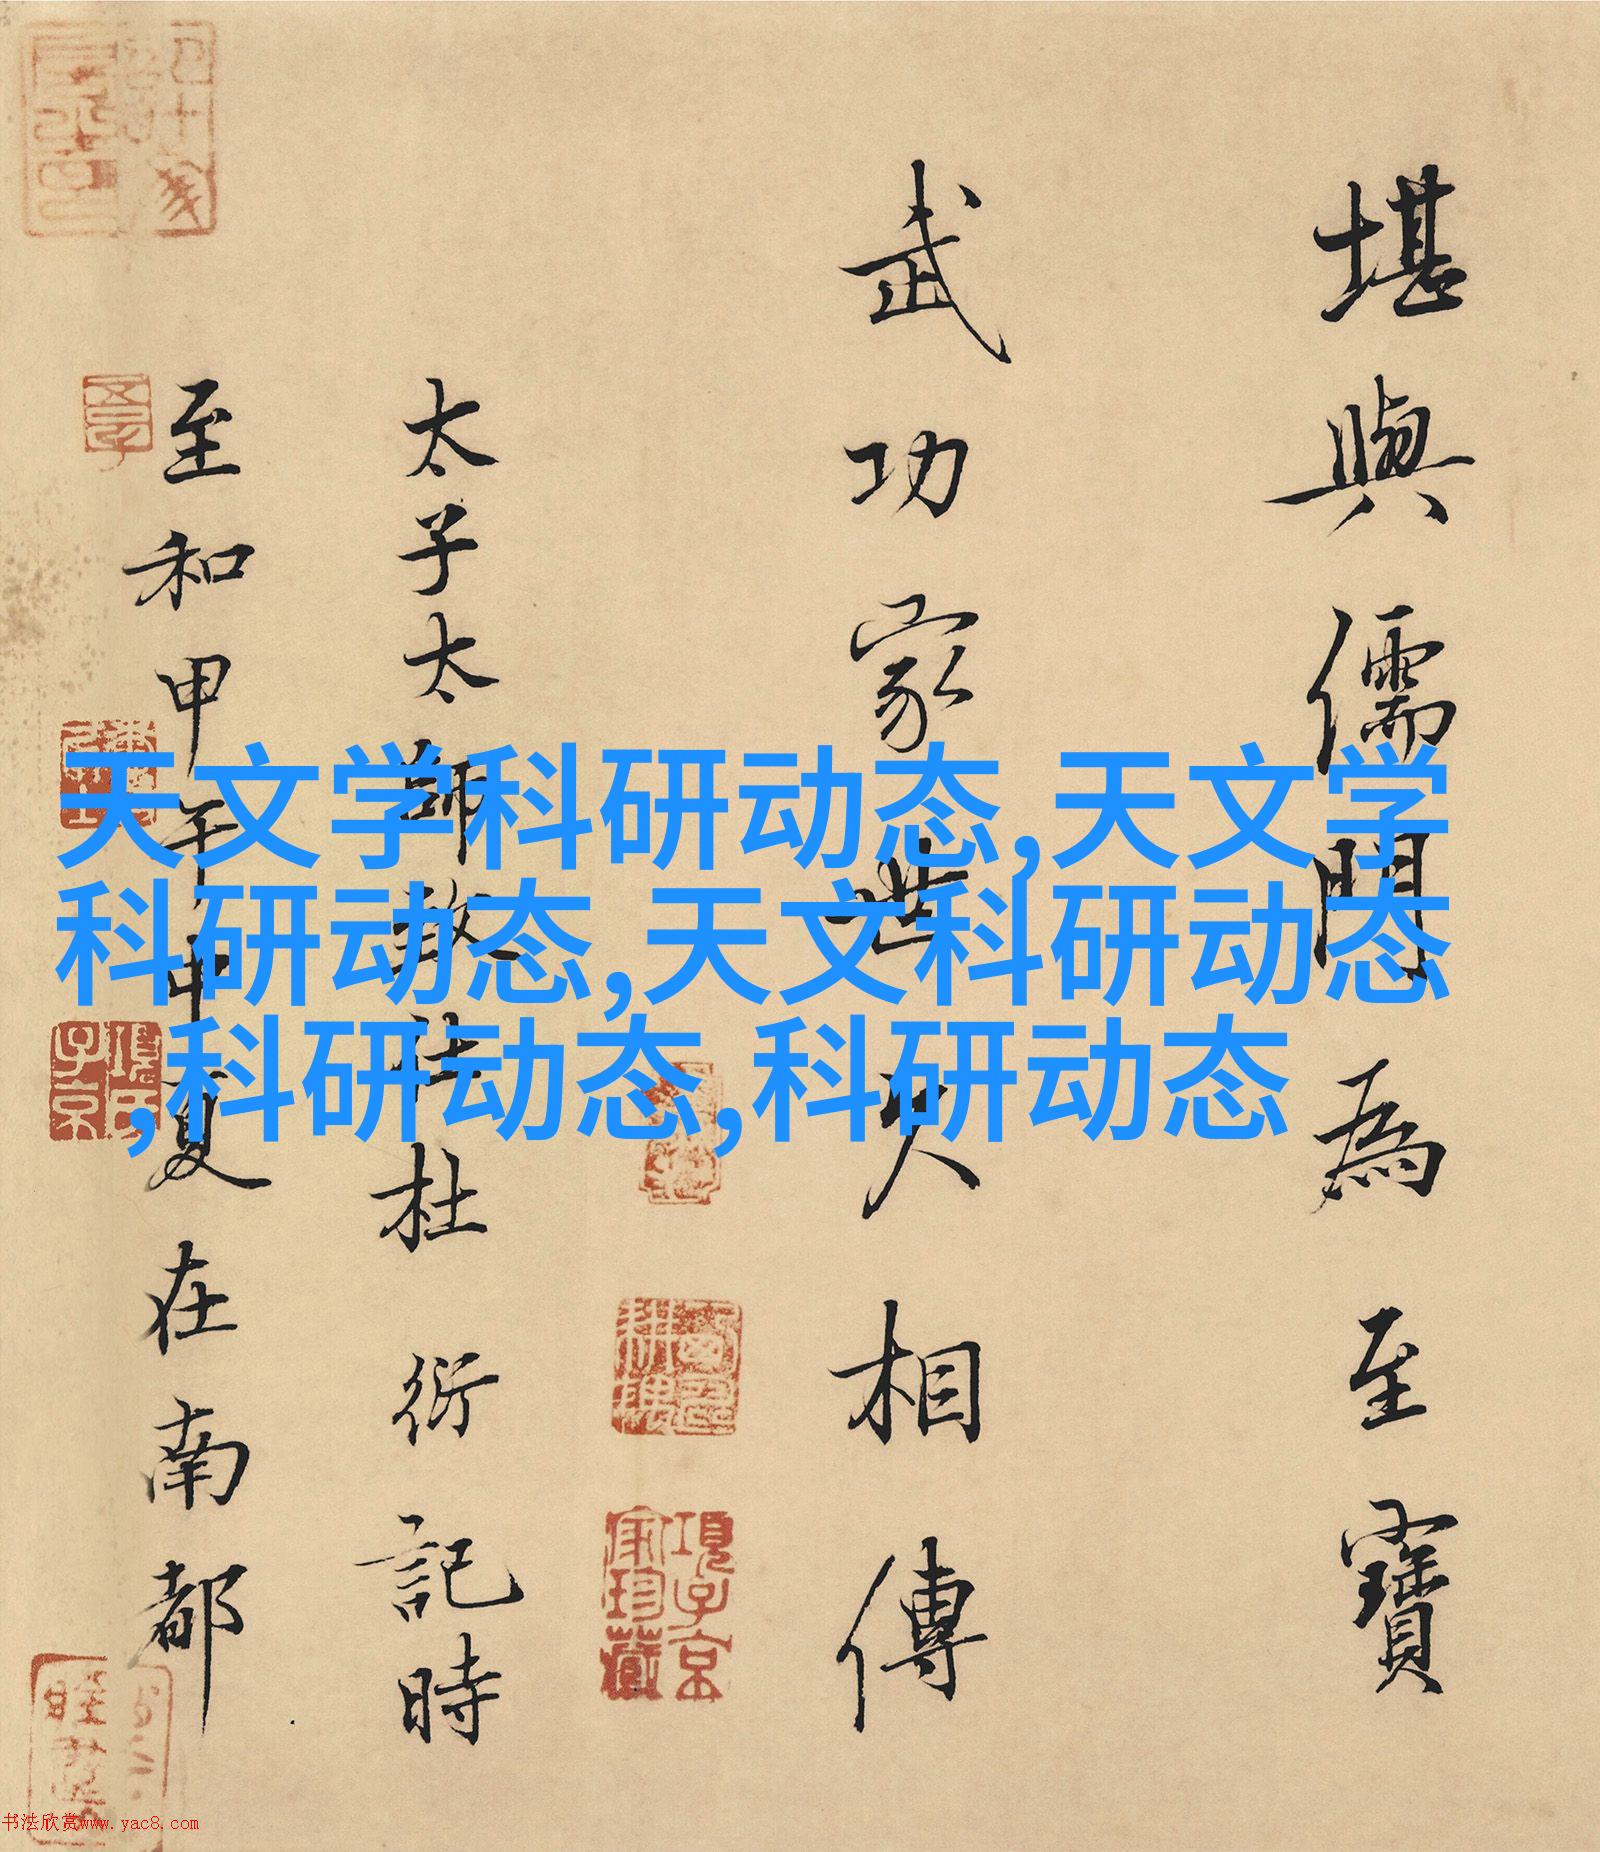 堪與儒門為至寶
武功家世久相傳
太子太師致仕杜衍記時
至和甲午中夏在南都
項子京
家珍藏
天文学科研动态,天文学
科研动态,天文科研动态
,科研动态,科研动态
书法欣赏www.yac8.com